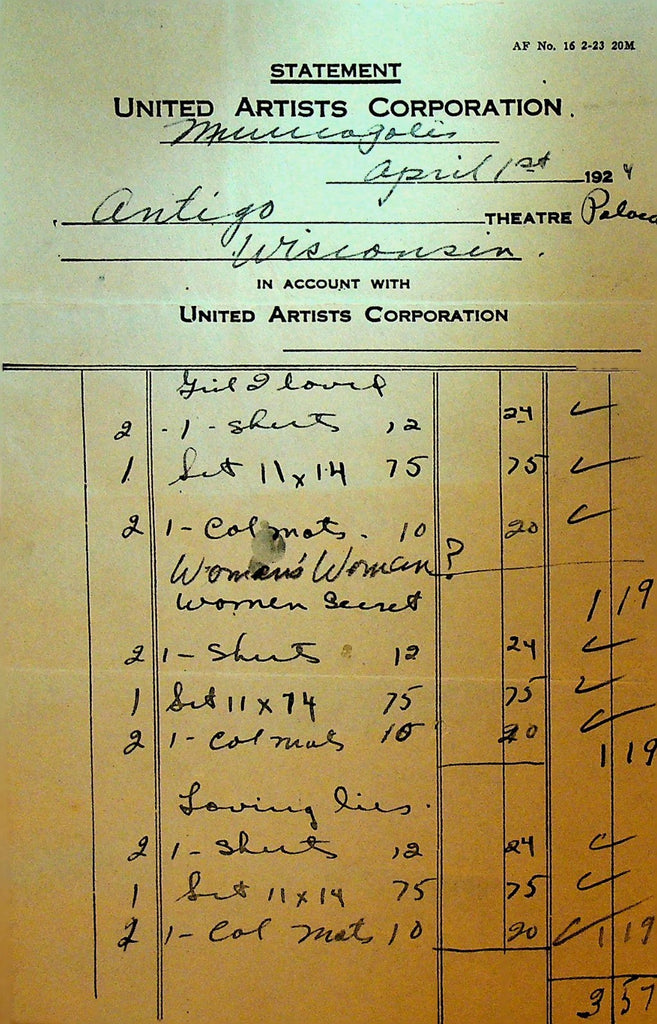 AF No. 16 2-23 20M
STATEMENT
UNITED ARTISTS CORPORATION.
Minneapolis
April 1st 1924
Antigo THEATRE Palace
Wisconsin.
IN ACCOUNT WITH
UNITED ARTISTS CORPORATION
Girl I loved
2 - 1 - Sheets 12 24 ✓
1 Set 11 x 14 75 75 ✓
2 1 - Col mats. 10 20 ✓
Woman's Woman?
Women Secret 1 19
2 1 - Sheets 12 24 ✓
1 Set 11 x 14 75 75 ✓
2 1 - Col mats 10 20 ✓ 1 19
Loving lies.
2 1 - Sheets 12 24 ✓
1 Set 11 x 14 75 75 ✓
2 1 - Col mats 10 20 ✓ 1 19
3 57